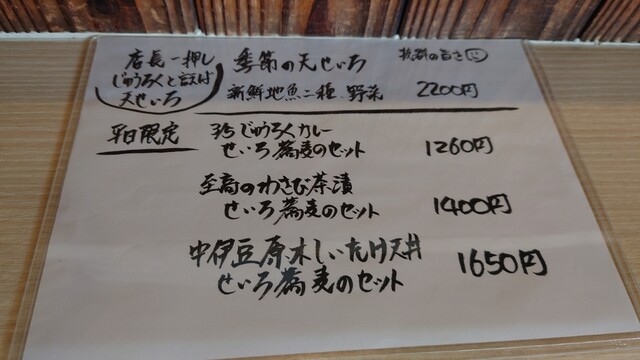 店長一押し
じゅうろくと言えば
天せいろ
季節の天せいろ 抜群の旨さ
新鮮地魚二種、野菜 2200円
平日限定 35じゅうろくカレー
せいろ蕎麦のセット 1260円
至高のわさび茶漬
せいろ蕎麦のセット 1400円
中伊豆原木しいたけ天丼
せいろ蕎麦のセット 1650円